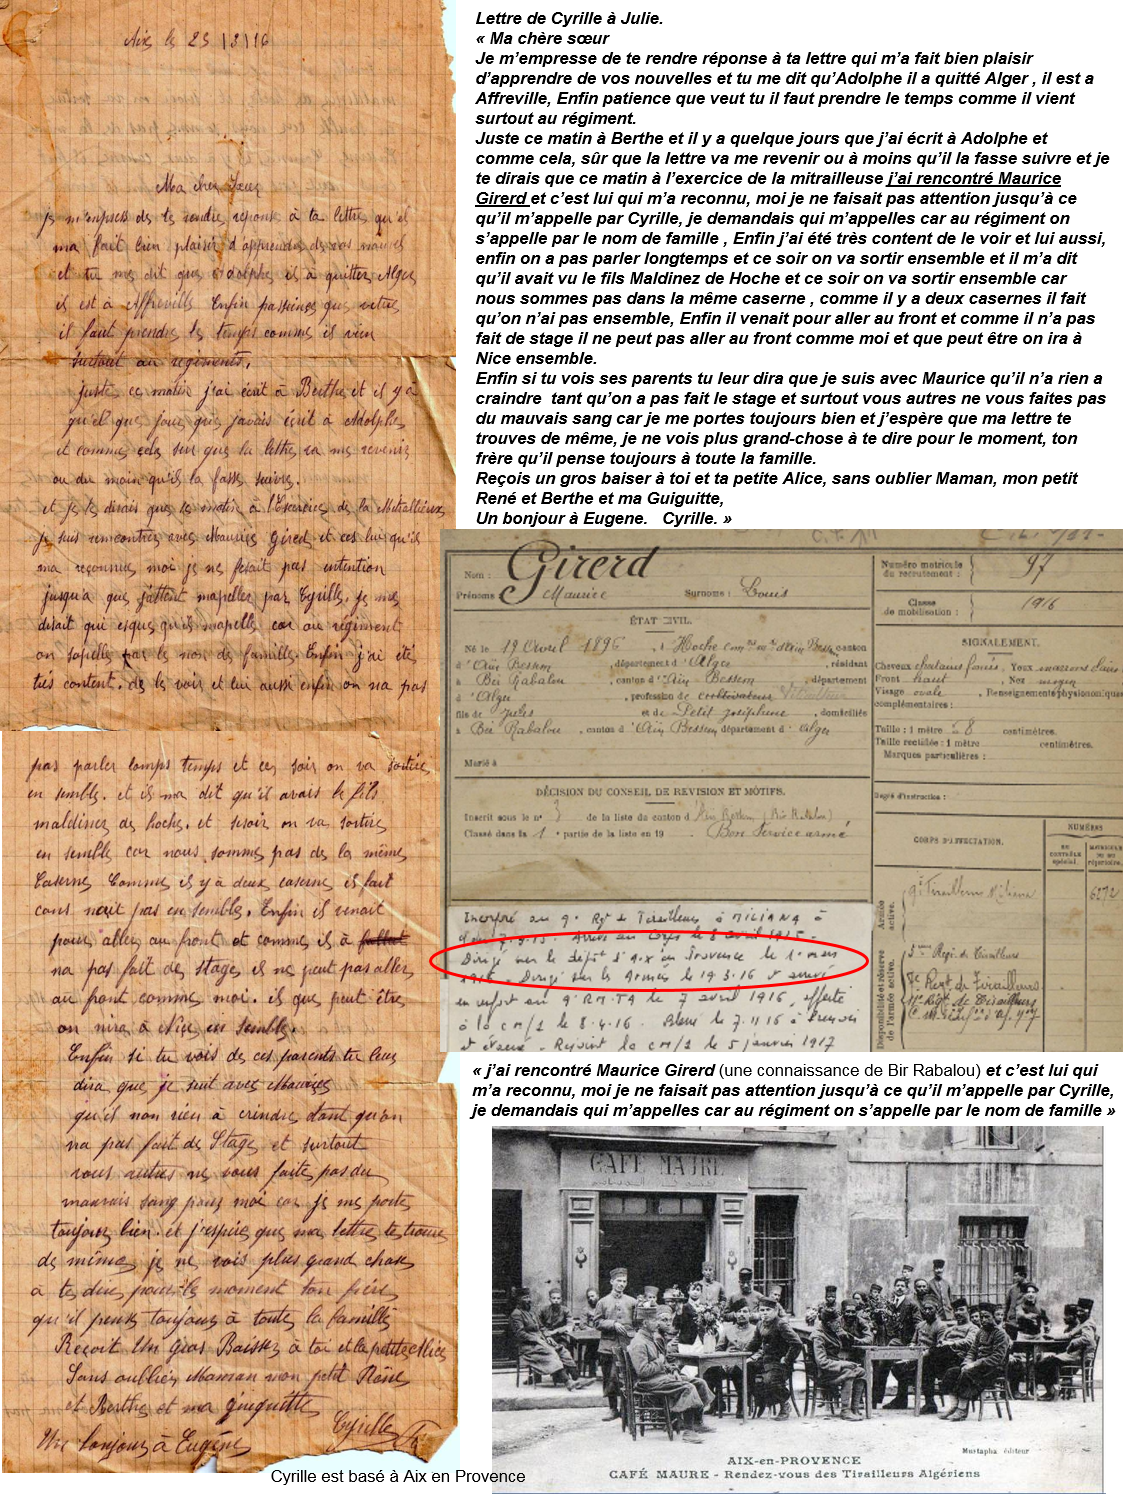 Aix le 25/3/16
Ma cher Soeur
je m'empress de te rendre réponse à ta lettre qu'el
ma fait bien plaisir d'apprendre de vos nouvel
et tu me dit que Adolphe il à quitter Alger
il est à Affreville Enfin
il faut prendre le temps comme il vien
surtout au regiments.
juste ce matin j'ai écrit à Berthe et il y à
qu'el que jour que javais écrit à Adolphe
et comme cela sur que la lettre va me revenir
ou du moin qu'il la fasse suivre.
et je te dirais que ce matin à l'Exercice de la
je suis rencontrer avec Maurice Gired et ces lui qu'il
ma reçonnue moi je ne fesait pas attention
jusqu'a que j'attent mapeller par Cyrille. je me
disait qui esque qu'il mapelle car au régiment
on sapelle par le nom de famille. Enfin j'ai été
très content de le voir et lui aussi enfin on na pas
pas parler lomps temps et ces soir on va sortire
en semble. et il ma dit qu'il avais le fils
maldinez de hoche. et sesoir on va sortire
en semble car nous sommes pas de la même
Caserne Comme il y à deux caserne il fait
cons nait pas en semble. Enfin il venait
pour aller au front et comme il à
na pas fait de stage il ne peut pas aller
au front comme moi. il que peut être
on nira à Nice en semble.
Enfin si tu vois de ces parents tu leur
dira que je suit avec Maurice
qu'il non rien à crindre tant qu'on
na pas fait de Stage et surtout
vous autres ne vous faite pas du
mauvais sang pour moi car je me porte
toujour bien. et j'espire que ma lettre te trouve
de même je ne vois plus grand chose
à te dire pour le moment ton frère
qu'il pense toujour à toute la famille
Reçoit Un gros Baisser à toi et la petite Alice
Sans oublier Maman mon petit Réné
et Berthe et ma guiguitte
Cyrille
Un bonjour à Eugéne
Lettre de Cyrille à Julie.
« Ma chère sœur
Je m'empresse de te rendre réponse à ta lettre qui m'a fait bien plaisir
d'apprendre de vos nouvelles et tu me dit qu'Adolphe il a quitté Alger , il est a
Affreville, Enfin patience que veut tu il faut prendre le temps comme il vient
surtout au régiment.
Juste ce matin à Berthe et il y a quelque jours que j'ai écrit à Adolphe et
comme cela, sûr que la lettre va me revenir ou à moins qu'il la fasse suivre et je
te dirais que ce matin à l'exercice de la mitrailleuse j'ai rencontré Maurice
Girerd et c'est lui qui m'a reconnu, moi je ne faisait pas attention jusqu'à ce
qu'il m'appelle par Cyrille, je demandais qui m'appelles car au régiment on
s'appelle par le nom de famille , Enfin j'ai été très content de le voir et lui aussi,
enfin on a pas parler longtemps et ce soir on va sortir ensemble et il m'a dit
qu'il avait vu le fils Maldinez de Hoche et ce soir on va sortir ensemble car
nous sommes pas dans la même caserne , comme il y a deux casernes il fait
qu'on n'ai pas ensemble, Enfin il venait pour aller au front et comme il n'a pas
fait de stage il ne peut pas aller au front comme moi et que peut être on ira à
Nice ensemble.
Enfin si tu vois ses parents tu leur dira que je suis avec Maurice qu'il n'a rien a
craindre tant qu'on a pas fait le stage et surtout vous autres ne vous faites pas
du mauvais sang car je me portes toujours bien et j'espère que ma lettre te
trouves de même, je ne vois plus grand-chose à te dire pour le moment, ton
frère qu'il pense toujours à toute la famille.
Reçois un gros baiser à toi et ta petite Alice, sans oublier Maman, mon petit
René et Berthe et ma Guiguitte,
Un bonjour à Eugene. Cyrille. »
Nom : Girerd
Prénoms Maurice Surnoms : Louis
ÉTAT CIVIL.
Né le 19 Avril 1896, à Hoche canton
d'Aïn Bessem, département d'Alger, résidant
à Bir Rabalou, canton d'Aïn-Bessem, département
d'Alger, profession de cultivateur
fils de Jules et de Petit Joséphine, domiciliés
à Bir Rabalou, canton d'Aïn Bessem département d'Alger
Marié à
DÉCISION DU CONSEIL DE REVISION ET MOTIFS.
Inscrit sous le n° 3 de la liste du canton d'Aïn Bessem (Bir Rabalou)
Classé dans la 1e partie de la liste en 19 Bon Service armé
Numéro matricule du recrutement : 97
Classe de mobilisation : 1916
SIGNALEMENT.
Cheveux chatains foncés, Yeux marrons clairs
Front haut, Nez moyen
Visage ovale, Renseignements physionomiques
complémentaires :
Taille : 1 mètre 68 centimètres.
Taille rectifiée : 1 mètre centimètres.
Marques particulières :
Degré d'instruction :
CORPS D'AFFECTATION.
NUMÉROS
EN CONTRÔLE spécial.
MATRICULE OU AU répertoire.
Armée active.
9e Tirailleurs
6272
Disponibilité et réserve de l'armée active.
5ème Régt de Tirailleurs
7e Régt de Tirailleurs
Régt de Tirailleurs
Incorporé au 9e Rgt de Tirailleurs à MILIANA à
Arrivé au corps le 8 avril 1915.
Dirigé sur le dépôt d'Aix en Provence le 1er mars
1916. Dirigé sur les Armées le 19.3.16 et arrivé
en renfort au 9e R.M.TA le 7 avril 1916, affecté
à la CM/1 le 8.4.16. Blessé le 7.11.16 à
et évacué. Rejoint la CM/1 le 5 janvier 1917
« j'ai rencontré Maurice Girerd (une connaissance de Bir Rabalou) et c'est lui qui
m'a reconnu, moi je ne faisait pas attention jusqu'à ce qu'il m'appelle par Cyrille,
je demandais qui m'appelles car au régiment on s'appelle par le nom de famille »
CAFÉ MAURE
Mustapha éditeur
AIX-en-PROVENCE
CAFÉ MAURE - Rendez-vous des Tirailleurs Algériens
Cyrille est basé à Aix en Provence